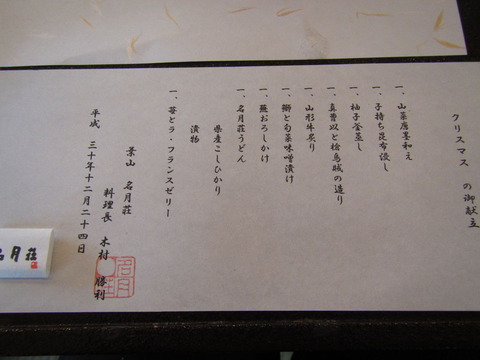 クリスマス の御献立
一、山菜唐墨和え
一、子持ち昆布浸し
一、柚子釜蒸し
一、真曽以と槍烏賊の造り
一、山形牛炙り
一、鰤と旬菜味噌漬け
一、蕪おろしかけ
一、名月荘うどん
県産こしひかり
漬物
一、苺とラ・フランスゼリー
葉山 名月荘
料理長 木村 勝利
平成 三十年十二月二十四日
名月荘